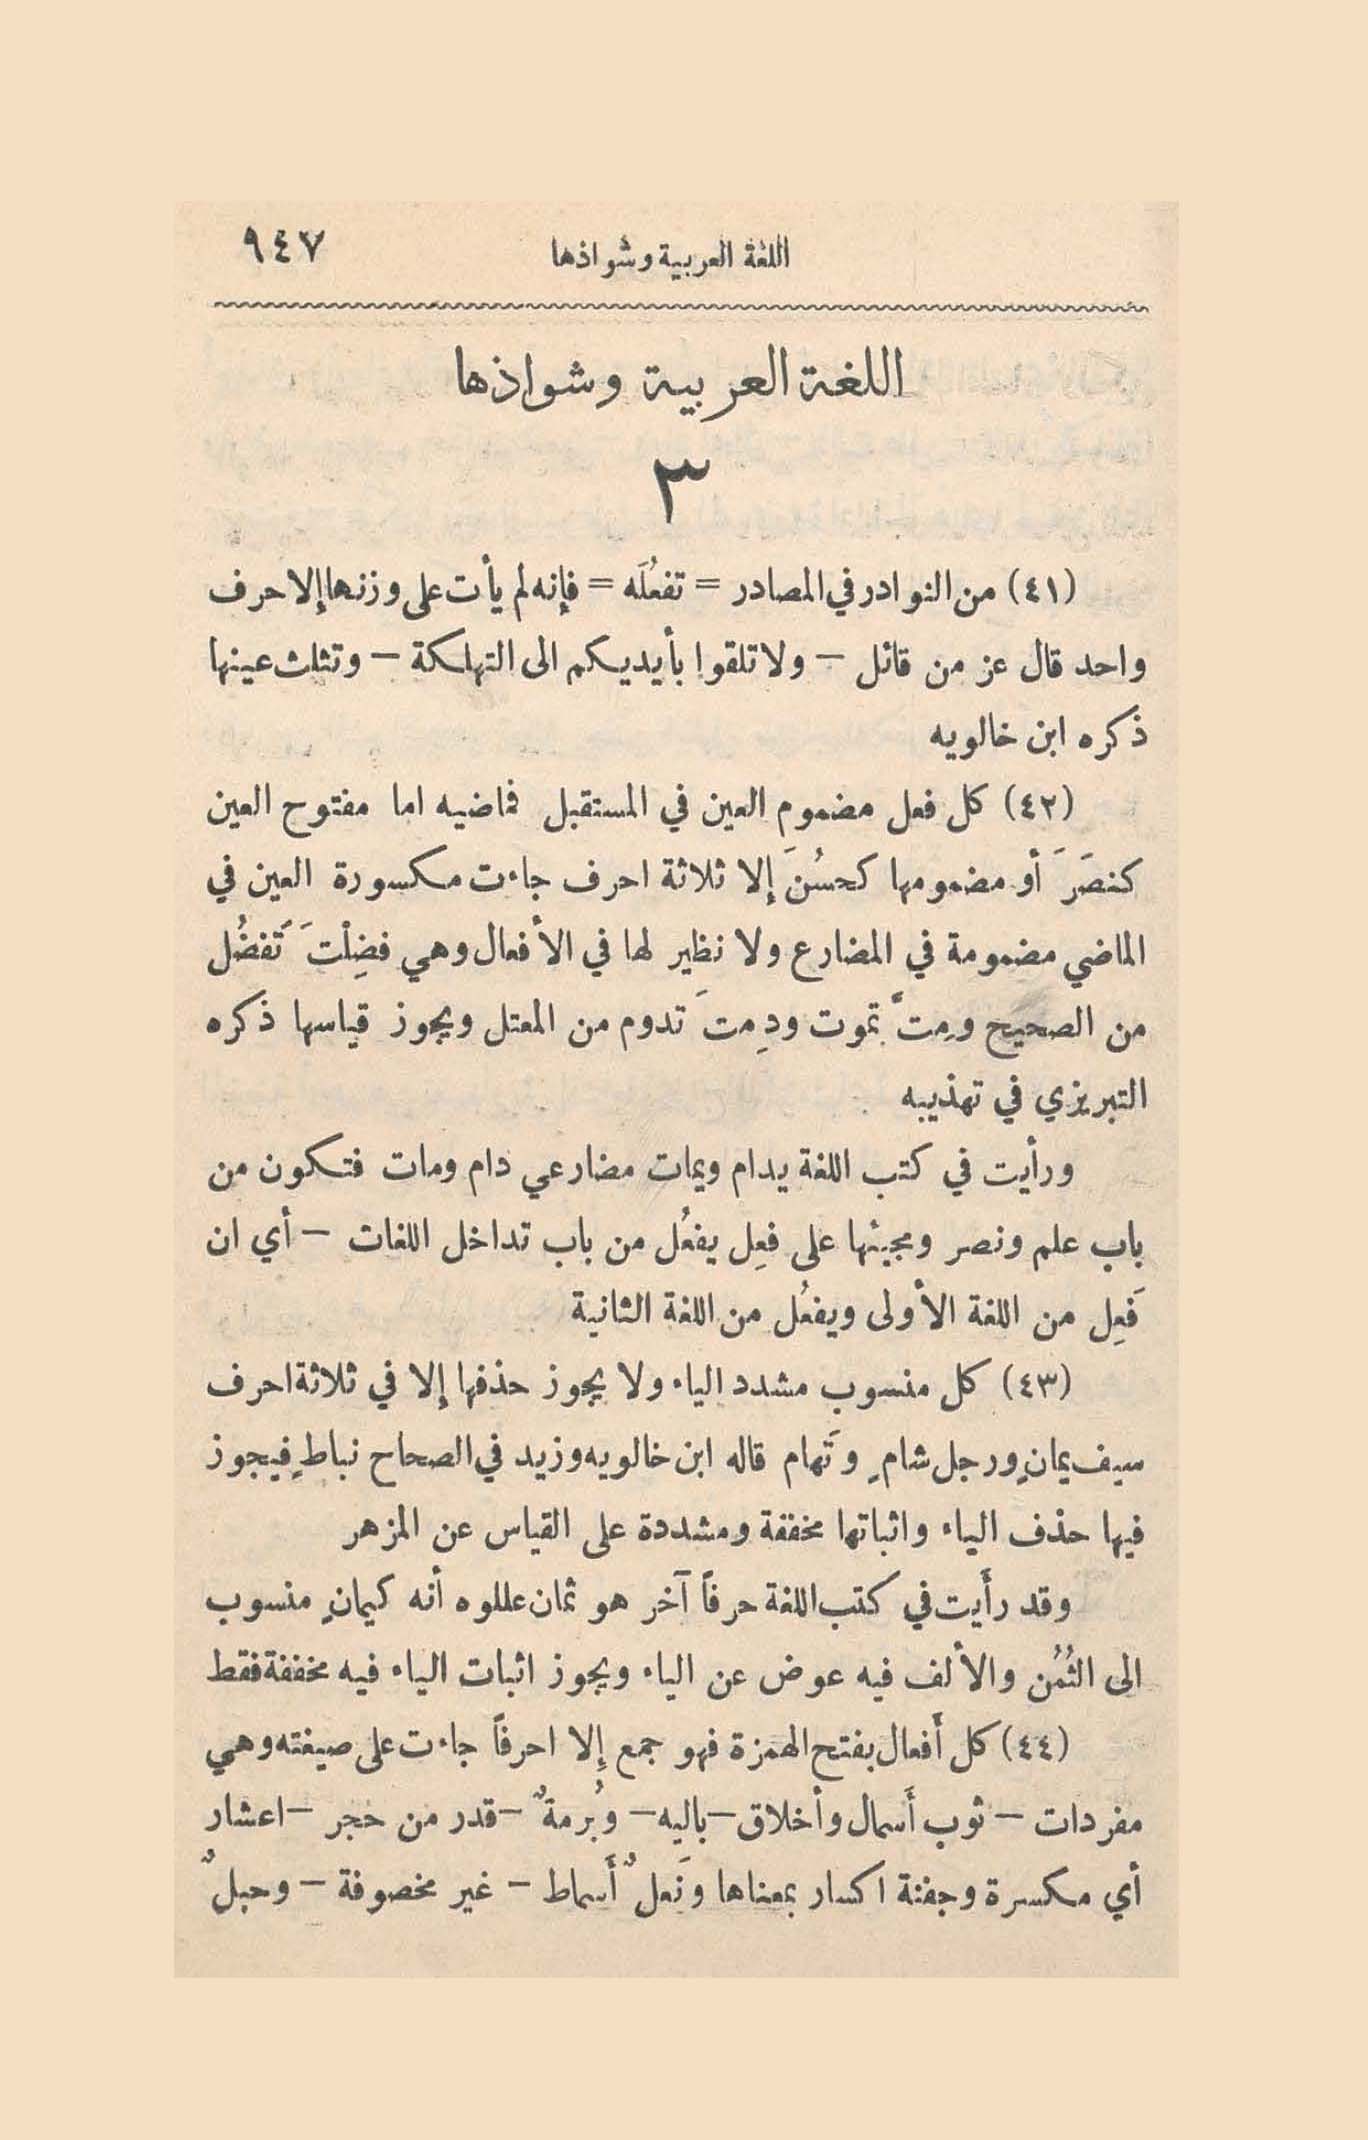 اللغة العربية وشواذها ٩٤٧
اللغة العربية وشواذها
٣
(٤١) من النوادر في المصادر = تفعُلَه = فإنه لم يأت على وزنها إلا حرف
واحد قال عز من قائل – ولا تلقوا بأيديكم الى التهلكة – وتثلث عينها
ذكره ابن خالويه
(٤٢) كل فعل مضموم العين في المستقبل فماضيه اما مفتوح العين
كنصَرَ أو مضمومها كحسُنَ إلا ثلاثة احرف جاءت مكسورة العين في
الماضي مضمومة في المضارع ولا نظير لها في الأفعال وهي فضِلْتَ تَفضُل
من الصحيح ومِتَّ تموت ودِمتَ تدوم من المعتل ويجوز قياسها ذكره
التبريزي في تهذيبه
ورأيت في كتب اللغة يدام ويمات مضارعي دام ومات فتكون من
باب علم ونصر ومجيئها على فعِل يفعُل من باب تداخل اللغات – أي ان
فَعِل من اللغة الأولى ويفعُل من اللغة الثانية
(٤٣) كل منسوب مشدد الياء ولا يجوز حذفها إلا في ثلاثة احرف
سيف يمانٍ ورجل شامٍ وتَهام قاله ابن خالويه وزيد في الصحاح نباطٍ فيجوز
فيها حذف الياء واثباتها مخففة ومشددة على القياس عن المزهر
وقد رأَيت في كتب اللغة حرفاً آخر هو ثمان عللوه أنه كيمانٍ منسوب
الى الثُمُن والألف فيه عوض عن الياء ويجوز اثبات الياء فيه مخففة فقط
(٤٤) كل أَفعال بفتح الهمزة فهو جمع إلا احرفاً جاءت على صيغته وهي
مفردات – ثوب أَسمال وأخلاق – باليه – وبُرمةٌ – قدر من حجر – اعشار
أي مكسرة وجفنة اكسار بمعناها ونَعلٌ أَسماط – غير مخصوفة – وحبلٌ